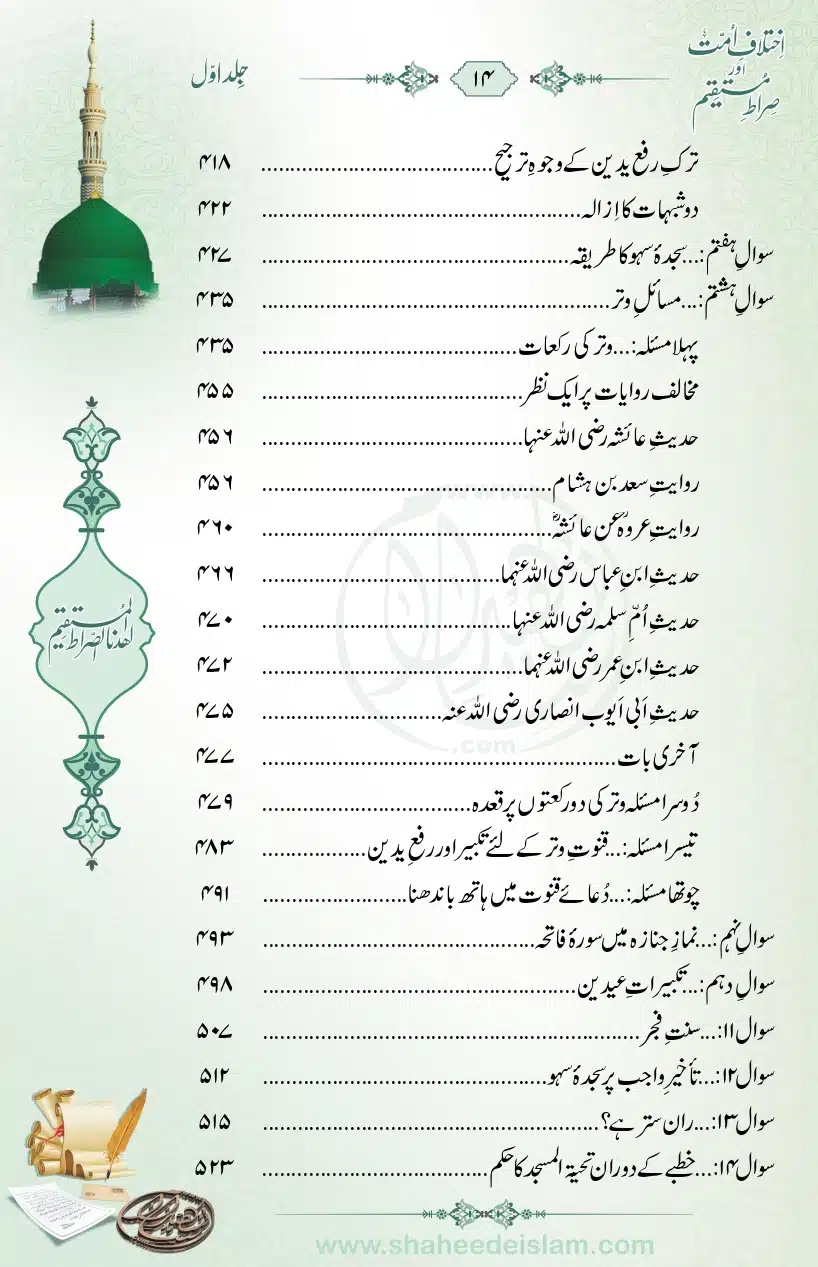 اِختلافِ اُمّت
اور
صِراطِ مُستقیم
۱۴
جِلد اوّل
ترکِ رفع یدین کے وجوہِ ترجیح ........................................ ۴۱۸
دو شبہات کا اِزالہ ....................................................... ۴۲۲
سوالِ ہفتم:... سجدۂ سہو کا طریقہ ..................................................... ۴۲۷
سوالِ ہشتم:... مسائلِ وتر ............................................................ ۴۳۵
پہلا مسئلہ:... وتر کی رکعات ............................................ ۴۳۵
مخالف روایات پر ایک نظر ............................................. ۴۵۵
حدیثِ عائشہ رضی اللہ عنہا ............................................. ۴۵۶
روایتِ سعد بن ہشام .................................................. ۴۵۶
روایتِ عروہؒ عن عائشہؓ .................................................. ۴۶۰
حدیثِ ابنِ عباس رضی اللہ عنہما ......................................... ۴۶۶
حدیثِ اُمِّ سلمہ رضی اللہ عنہا ........................................... ۴۷۰
حدیثِ ابنِ عمر رضی اللہ عنہما ............................................. ۴۷۲
حدیثِ اَبی اَیوب انصاری رضی اللہ عنہ ............................... ۴۷۵
آخری بات ............................................................. ۴۷۷
دُوسرا مسئلہ وتر کی دو رکعتوں پر قعدہ .................................... ۴۷۹
تیسرا مسئلہ:... قنوتِ وتر کے لئے تکبیر اور رفعِ یدین .................. ۴۸۳
چوتھا مسئلہ:... دُعائے قنوت میں ہاتھ باندھنا ......................... ۴۹۱
سوالِ نہم:... نمازِ جنازہ میں سورۂ فاتحہ ............................................... ۴۹۳
سوالِ دہم:... تکبیراتِ عیدین ...................................................... ۴۹۸
سوال ۱۱:... سنتِ فجر ................................................................. ۵۰۷
سوال ۱۲:... تأخیرِ واجب پر سجدۂ سہو ................................................. ۵۱۲
سوال ۱۳:... ران ستر ہے؟ .......................................................... ۵۱۵
سوال ۱۴:... خطبے کے دوران تحیۃ المسجد کا حکم ....................................... ۵۲۳
اھدنا الصّراط المُستقیم
.com
www.shaheedeislam.com